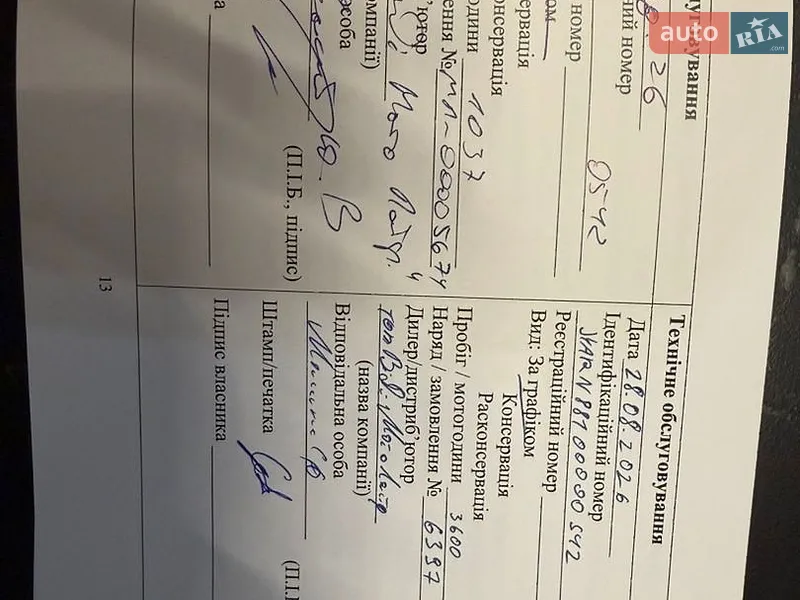 auto RIA
.com
луговування
26
ний номер
0542
номер
ом
сервація
нсервація
години 1037
ення № МЛ-00005674
'ютор
Мото Патр.
омпанії)
особа
В
(П.І.Б., підпис)
13
Технічне обслуговування
Дата 28.08.2026
Ідентифікаційний номер
JYARN881000000542
Реєстраційний номер
Вид: За графіком
Консервація
Расконсервація
Пробіг / мотогодини 3600
Наряд / замовлення № 6397
Дилер/дистриб'ютор
(назва компанії)
Відповідальна особа
Штамп/печатка
Підпис власника